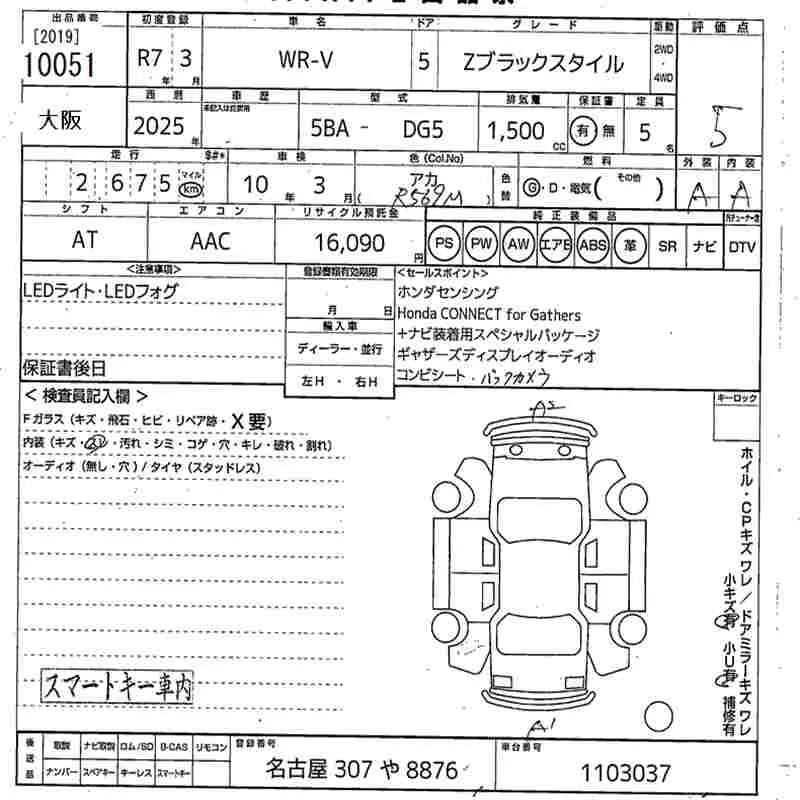 出品番号 初度登録 車名 ドア グレード 駆動 評価点
[2019] 10051 R7年 3月 WR-V 5 Zブラックスタイル 2WD・4WD 5
西暦 車歴 型式 排気量 保証書 定員
大阪 2025年 5BA - DG5 1,500cc 有 無 5名
走行 車検 色(Col.No) 燃料 外装 内装
2675 マイル km 10年 3月 アカ (R569M) 色替 G・D・電気( その他 ) A A
シフト エアコン リサイクル預託金 純正装備品
AT AAC 16,090円 PS PW AW エアB ABS 革 SR ナビ DTV
<注意事項> 登録書類有効期限 <セールスポイント>
LEDライト・LEDフォグ 月 日 ホンダセンシング
輸入車 Honda CONNECT for Gathers
ディーラー・並行 +ナビ装着用スペシャルパッケージ
左H・右H ギャザーズディスプレイオーディオ
保証書後日 コンビシート・バックカメラ
<検査員記入欄> キーロック
Fガラス(キズ・飛石・ヒビ・リペア跡・X要)
内装(キズ・スレ・汚れ・シミ・コゲ・穴・キレ・破れ・割れ)
オーディオ(無し・穴)/タイヤ(スタッドレス)
A2
ホイル・CPキズワレ/ドアミラーキズワレ
小キズ有 小U有 補修有
スマートキー車内
A1
後送品 取説 ナビ取説 ロム/SD B-CAS リモコン 登録番号 車台番号
ナンバー スペアキー キーレス スマートキー 名古屋 307 や 8876 1103037